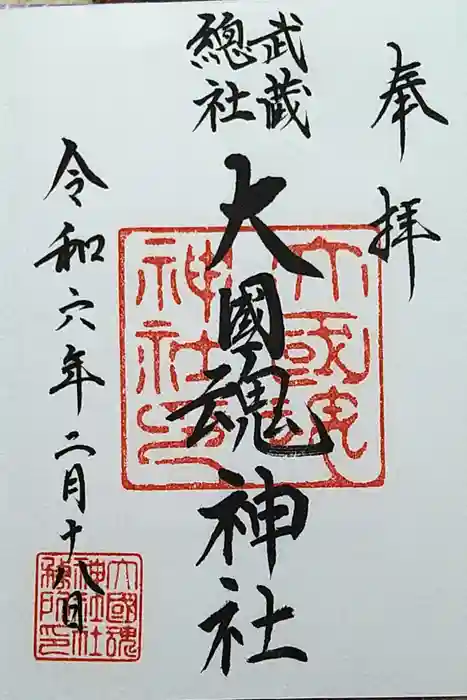 奉拝
武蔵
總社
大國魂神社
大國魂
神社印
令和六年二月十八日
大國魂
神社社
務所印